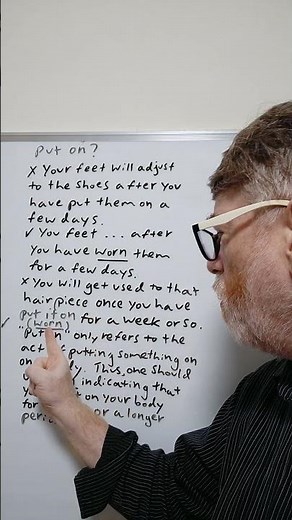 put on?
x Your feet will adjust
to the shoes after you
have put them on a
few days.
✓ You feet ... after
you have worn them
for a few days.
x You will get used to that
hairpiece once you have
put it on for a week or so.
✓ (worn)
"put on" only refers to the
act putting something on
on Thus, one should
indicating that
on your body
for or a longer